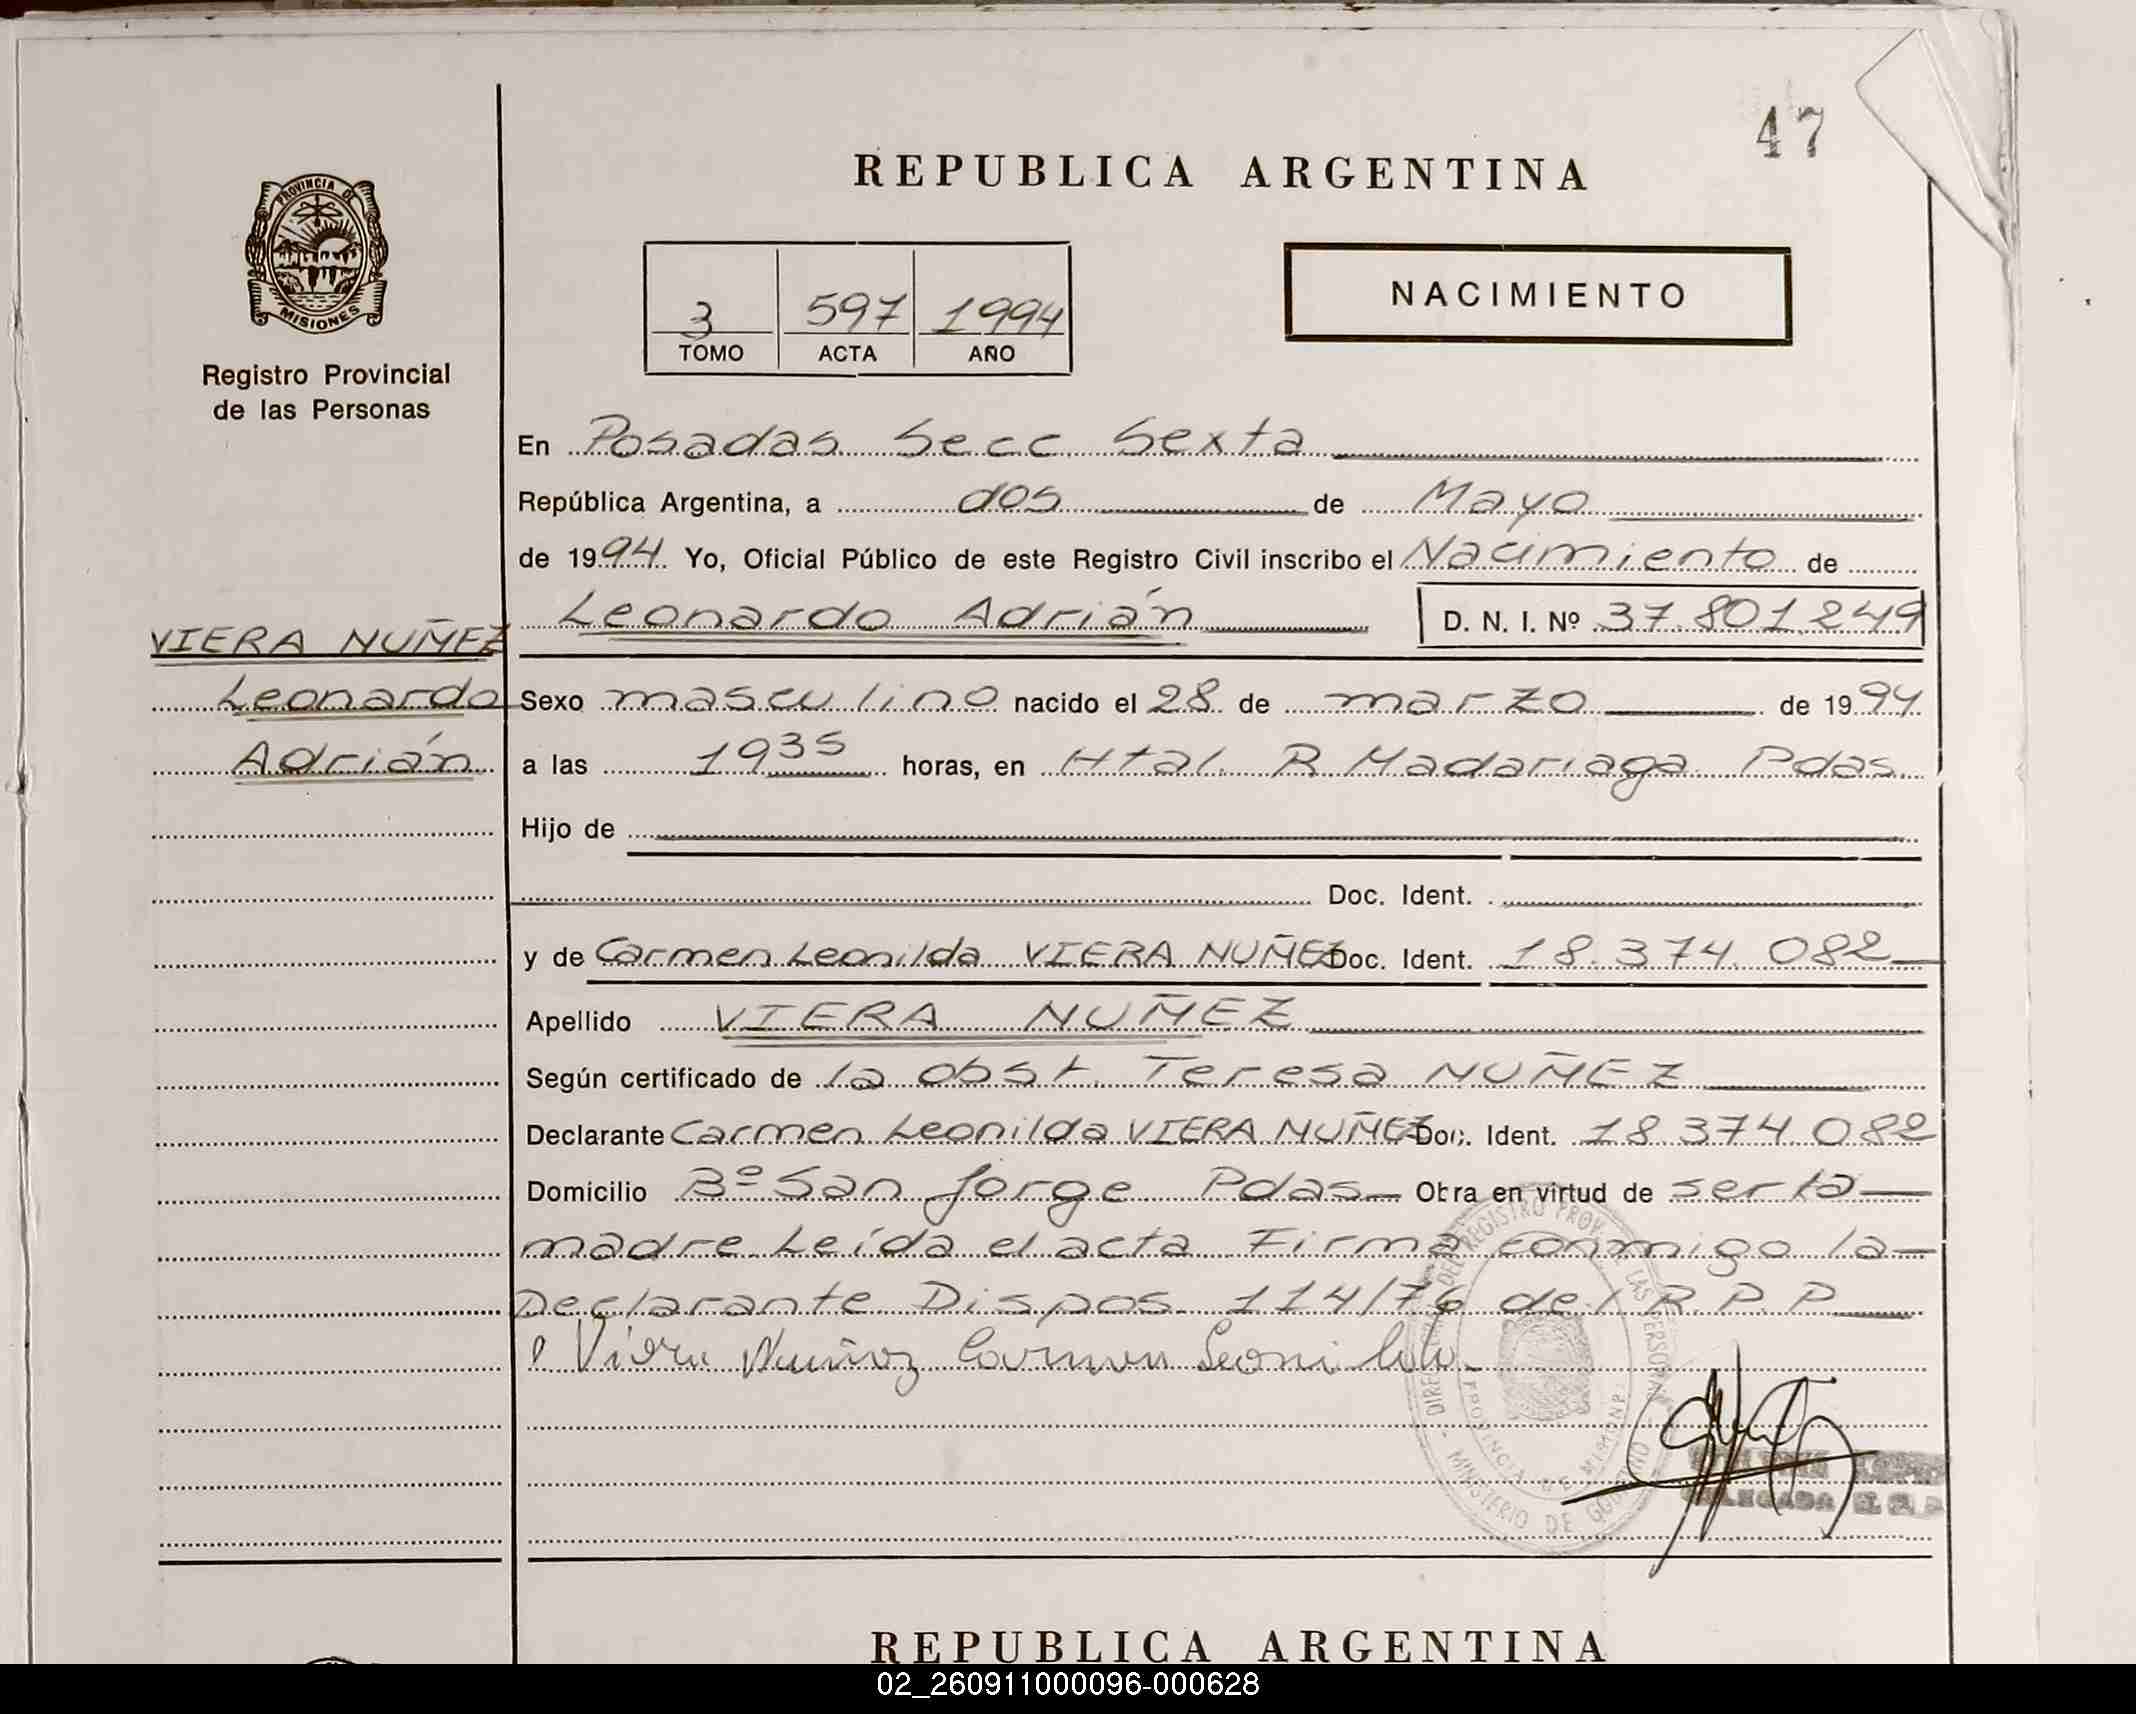 47
REPUBLICA ARGENTINA
PROVINCIA DE
MISIONES
Registro Provincial
de las Personas
3 597 1994
TOMO ACTA AÑO
NACIMIENTO
En Posadas Secc. Sexta
República Argentina, a dos de Mayo
de 1994. Yo, Oficial Público de este Registro Civil inscribo el Nacimiento de
Leonardo Adrián D. N. I. Nº 37.801.249
VIERA NUÑEZ
Leonardo
Adrián
Sexo masculino nacido el 28 de marzo de 1994
a las 19 35 horas, en Htal. R Madariaga Pdas.
Hijo de
Doc. Ident.
y de Carmen Leonilda VIERA NUÑEZ Doc. Ident. 18.374.082
Apellido VIERA NUÑEZ
Según certificado de la obst. Teresa NUÑEZ
Declarante Carmen Leonilda VIERA NUÑEZ Doc. Ident. 18.374.082
Domicilio Bº San Jorge Pdas Obra en virtud de ser la
madre. Leída el acta Firma conmigo la
Declarante Dispos. 114/76 del R.P.P
Viera Nuñez Carmen Leonilda
DIRECCION DEL REGISTRO PROV. DE LAS PERSONAS
PROVINCIA DE MISIONES
MINISTERIO DE GOBIERNO
DELEGADA R.P.P
REPUBLICA ARGENTINA
02_260911000096-000628